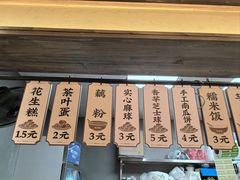 花生糕
1.5元
茶叶蛋
2元
藕粉
3元
实心麻球
3元
香芋芝士球
5元
手工南瓜饼
4元
糯米饭
3元